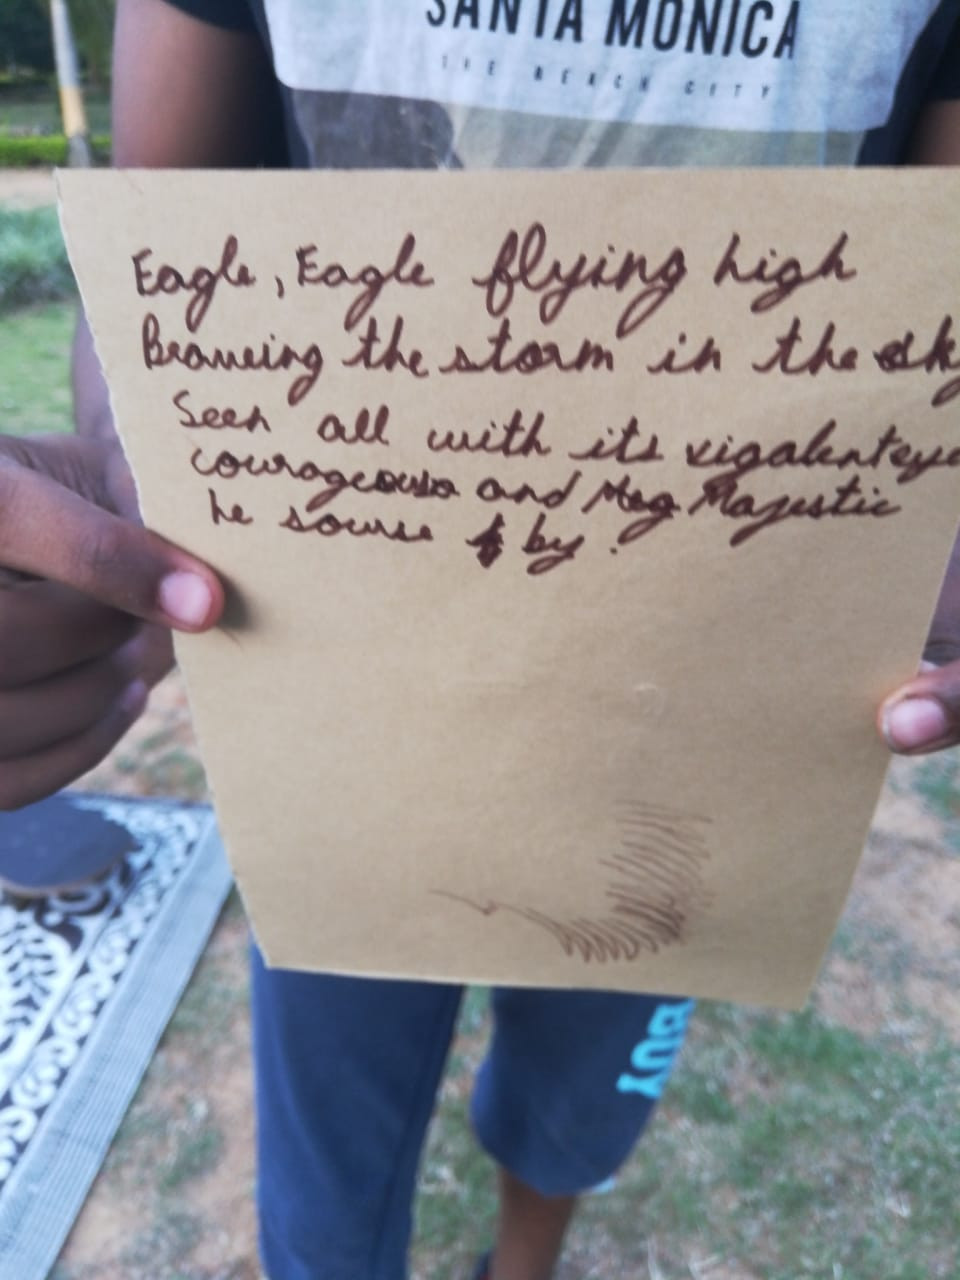 SANTA MONICA
THE BEACH CITY
Eagle, Eagle flying high
the storm in the sk
Seen all with its vigalent eye
courageous and Meg Majestic
he sourse by.
BUY